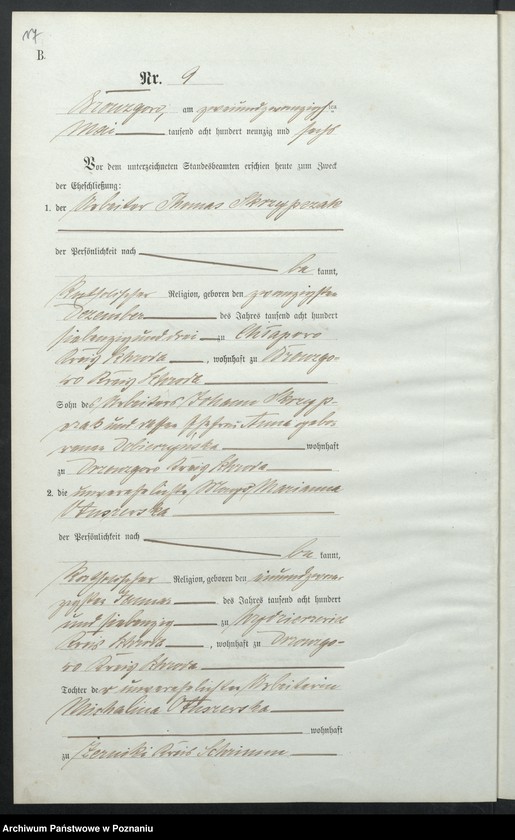 B.
Nr. 9
am zweiundzwanzigsten
Mai tausend acht hundert neunzig und sechs
Vor dem unterzeichneten Standesbeamten erschien heute zum Zweck
der Eheschließung:
1. der Arbeiter Thomas Skrzypczak
der Persönlichkeit nach
be kannt,
katholischer Religion, geboren den zwanzigsten
Dezember des Jahres tausend acht hundert
siebenzig und drei zu Chłapowo
Kreis Schroda, wohnhaft zu
Kreis Schroda
Sohn des Arbeiters Johann Skrzyp-
czak und dessen Ehefrau Anna gebo-
renen wohnhaft
zu Kreis Schroda
2. die unverehelichte Magd Marianna
der Persönlichkeit nach
be kannt,
katholischer Religion, geboren den einundzwan-
zigsten Januar des Jahres tausend acht hundert
und siebenzig zu
Kreis Schroda, wohnhaft zu
Kreis Schroda
Tochter der unverehelichten Arbeiterin
Michalina
wohnhaft
zu Żerniki Kreis Schrimm
Archiwum Państwowe w Poznaniu